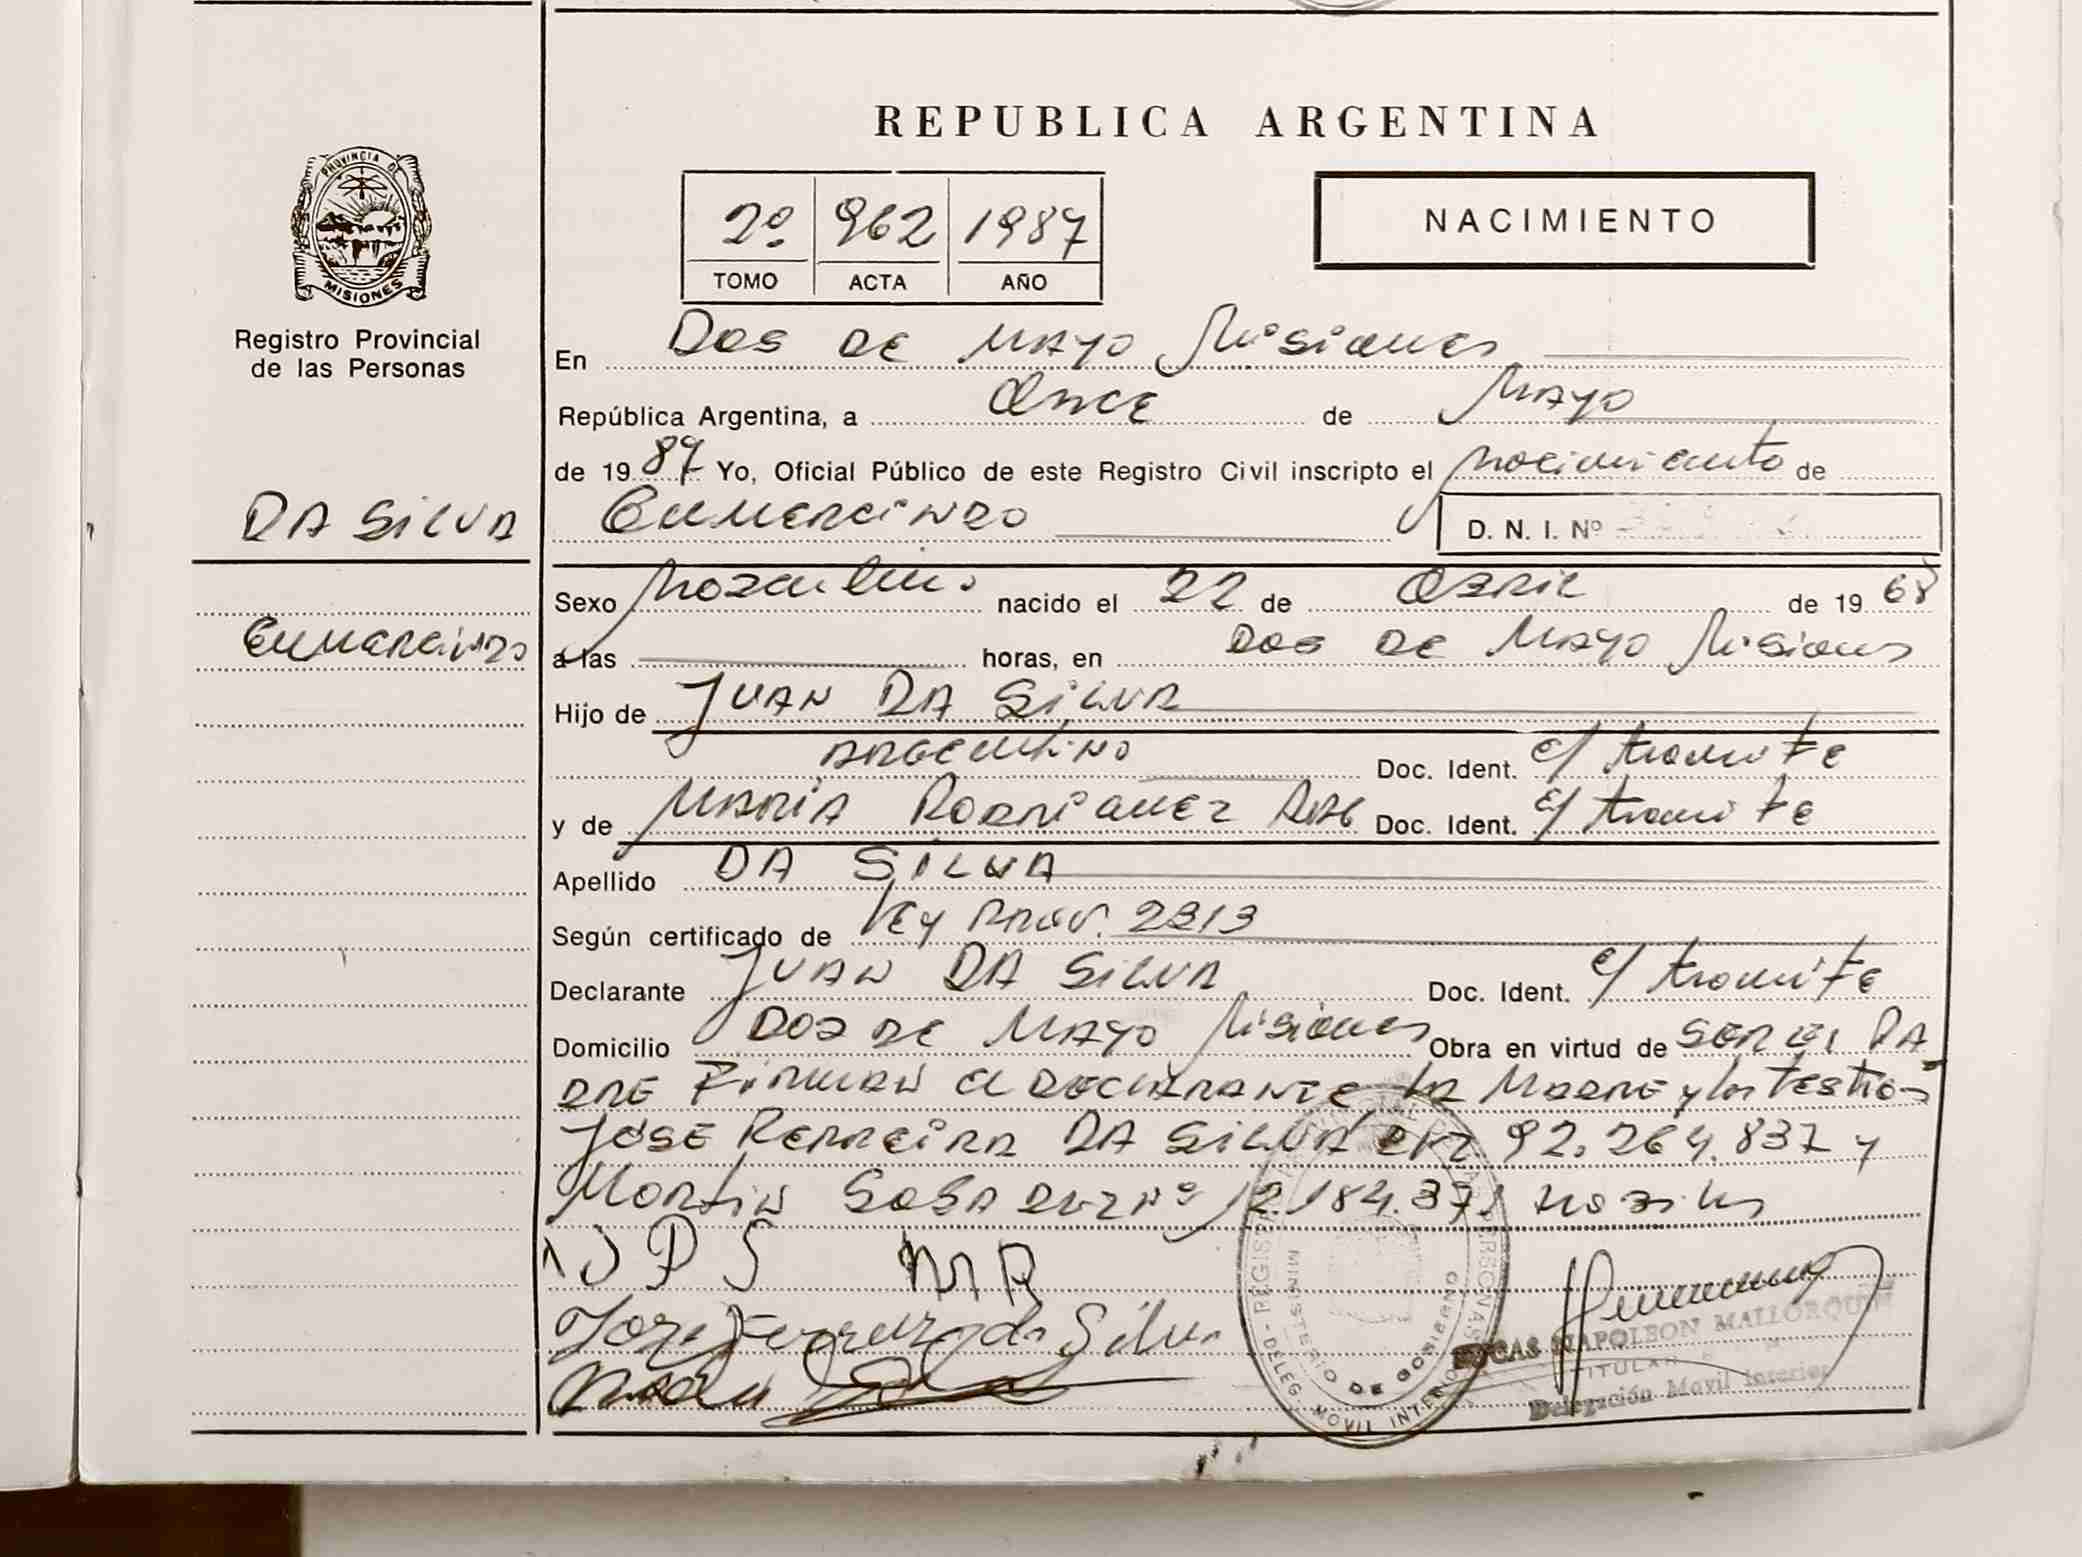 REPUBLICA ARGENTINA
PROVINCIA DE MISIONES
Registro Provincial
de las Personas
2º 962 1987
TOMO ACTA AÑO
NACIMIENTO
En Dos DE MAYO Misiones
República Argentina, a Once de Mayo
de 1987 Yo, Oficial Público de este Registro Civil inscripto el nacimiento de
DA SILVA
D. N. I. Nº
Sexo Masculino nacido el 22 de ABRIL de 1968
a las horas, en Dos DE MAYO Misiones
Hijo de JUAN DA SILVA
ARGENTINO Doc. Ident. e/ tramite
y de MARIA RODRIGUEZ Doc. Ident. e/ tramite
Apellido DA SILVA
Según certificado de Ley Prov. 2313
Declarante JUAN DA SILVA Doc. Ident. e/ tramite
Domicilio DOS DE MAYO Misiones Obra en virtud de SER EL PA
DRE FIRMAN el DECLARANTE LA MADRE y los testigos
JOSE FERREIRA DA SILVA DNI 92.264.837 y
Martin SOSA DNI Nº 12.184.371
J D S MR
Jose Ferreira da Silva
REGISTRO PERSONAS
MINISTERIO DE GOBIERNO
DELEG. MOVIL INTERIOR
LUCAS NAPOLEON MALLORQUIN
TITULAR
Delegación Movil Interior